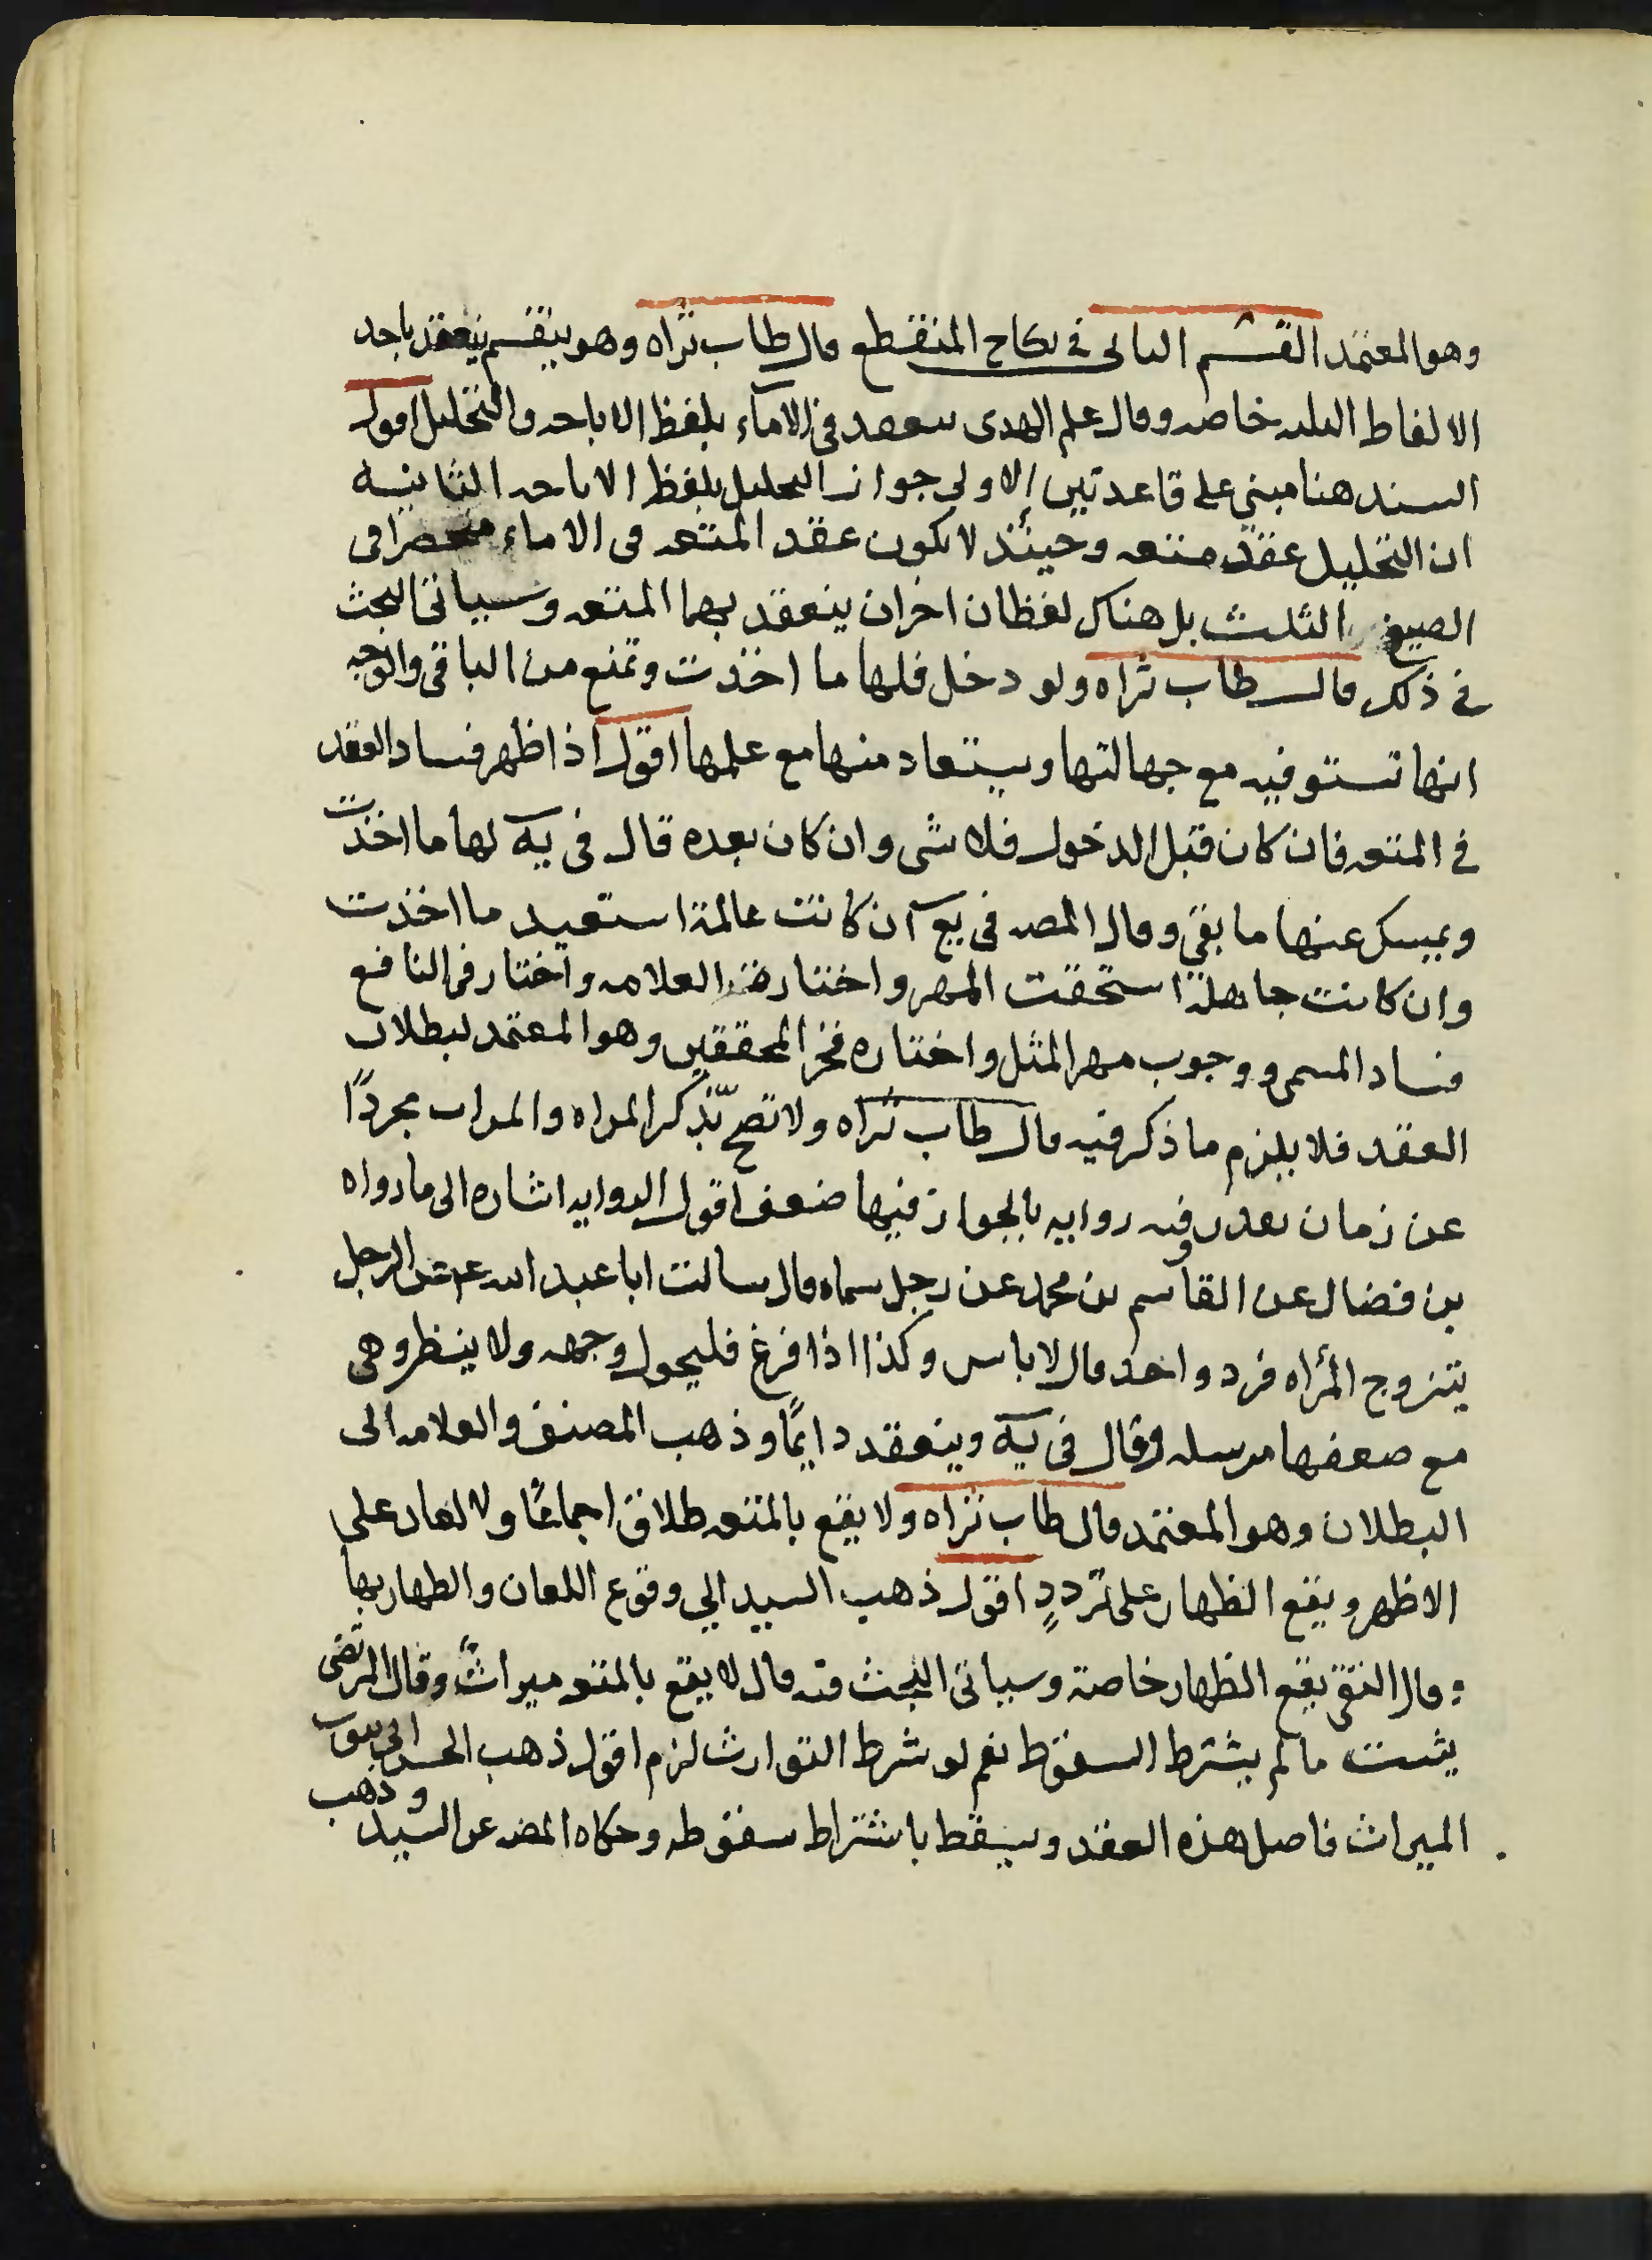 وهو المعتمد القسم الثانى فى نكاح المنقطع قال طاب ثراه وهو ينقسم ينعقد باحد
الالفاظ الثلثه خاصه وقال علم الهدى ينعقد فى الآماء بلفظ الاباحه والتحليل اقول
السند هنا مبني على قاعدتين الاولى جواز التحليل بلفظ الاباحه الثانيه
ان التحليل عقد متعه وحينئذ لا يكون عقد المتعه فى الاماء منحصرا فى
الصيغ الثلث بل هناك لفظان اخران ينعقد بهما المتعه وسياتى البحث
فى ذلك قال طاب ثراه ولو دخل فلها ما اخذت وتمنع من الباقى والوجه
انها تستوفيه مع جهالتها ويستعاد منها مع علمها اقول اذا ظهر فساد العقد
فى المتعه فان كان قبل الدخول فلا شى وان كان بعده قال فى يه لها ما اخذت
ويمسك عنها ما بقي وقال المصه فى يع ان كانت عالمة استعيد ما اخذت
وان كانت جاهلة استحقت المهر واختاره العلامه واختار فى النافع
فساد المسمى ووجوب مهر المثل واختاره فخر المحققين وهو المعتمد لبطلان
العقد فلا يلزم ما ذكر فيه قال طاب ثراه ولا تصح بذكر المراه والمرات مجردًا
عن زمان مقدر وفيه روايه بالجواز فيها ضعف اقول الروايه اشاره الى ما رواه
بن فضال عن القاسم بن محمد عن رجل سماه قال سالت ابا عبد الله عم عن الرجل
يتزوج المراه فرد واحد قال لا باس وكذا اذا فرغ فليحول وجهه ولا ينظر وهى
مع ضعفها مرسله وقال فى يه وينعقد دايمًا وذهب المصنف والعلامه الى
البطلان وهو المعتمد قال طاب ثراه ولا يقع بالمتعه طلاق اجماعًا ولا لعان على
الاظهر ويقع الظهار على تردد اقول ذهب السيد الى وقوع اللعان والظهار بها
وقال التقى يقع الظهار خاصة وسياتى البحث فيه قال لا يقع بالمتعه ميراث وقال المرتضى
يثبت ما لم يشترط السقوط نعم لو شرط التوارث لزم اقول ذهب الحسن الى ثبوت
الميراث فاصل هذه العقد ويسقط باشتراط سقوطه وحكاه المصه عن السيد وذهب